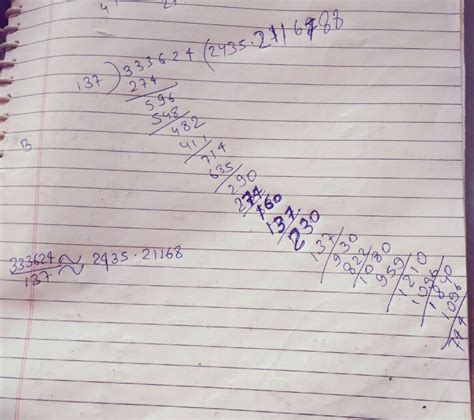 137 ) 333624 ( 2435.2116788
274
596
548
482
B
411
714
685
290
274
160
137
230
137
930
822
1080
959
1210
1096
1096
333624 ≈ 2435.21168
137